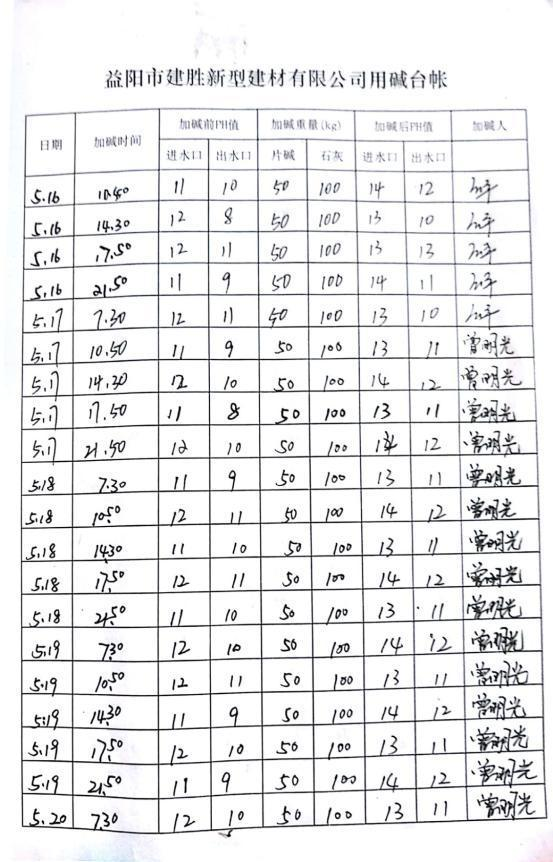 益阳市建胜新型建材有限公司用碱台帐
日期 加碱时间 加碱前PH值 加碱重量(kg) 加碱后PH值 加碱人
进水口 出水口 片碱 石灰 进水口 出水口
5.16 10.50 11 10 50 100 14 12
5.16 14.30 12 8 50 100 13 10
5.16 17.50 12 11 50 100 13 13
5.16 21.50 11 9 50 100 14 11
5.17 7.30 12 11 50 100 13 10
5.17 10.50 11 9 50 100 13 11 曾明光
5.17 14.30 12 10 50 100 14 12 曾明光
5.17 17.50 11 8 50 100 13 11 曾明光
5.17 21.50 12 10 50 100 12 曾明光
5.18 7.30 11 9 50 100 13 11 曾明光
5.18 10.50 12 11 50 100 14 12 曾明光
5.18 14.30 11 10 50 100 13 11 曾明光
5.18 17.50 12 11 50 100 14 12 曾明光
5.18 21.50 11 10 50 100 13 11 曾明光
5.19 7.30 12 10 50 100 14 12 曾明光
5.19 10.50 12 11 50 100 13 11 曾明光
5.19 14.30 11 9 50 100 14 12 曾明光
5.19 17.50 12 10 50 100 13 11 曾明光
5.19 21.50 11 9 50 100 14 12 曾明光
5.20 7.30 12 10 50 100 13 11 曾明光